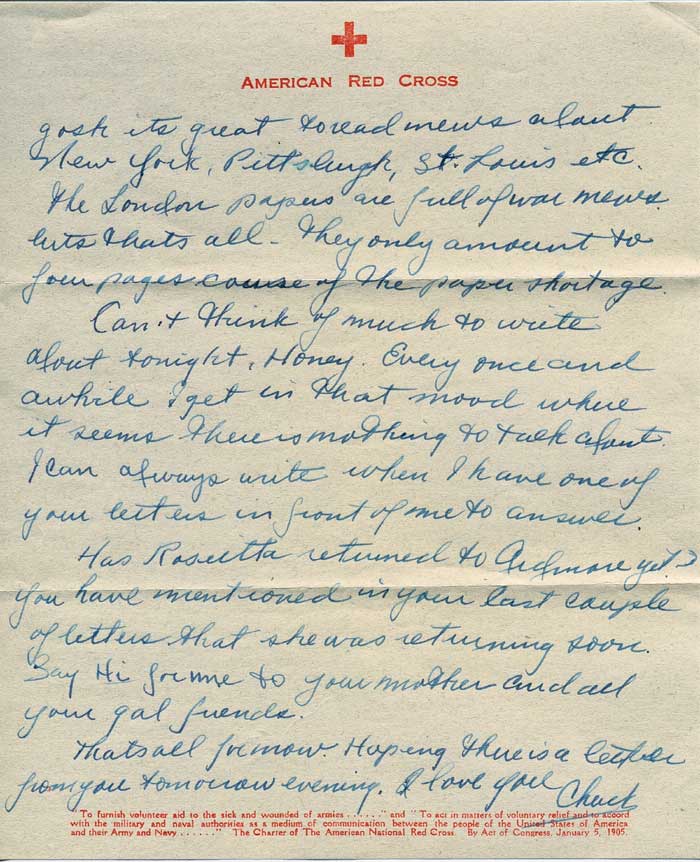 AMERICAN RED CROSS
gosh its great to read news about
New York, Pittsburgh, St. Louis etc.
The London papers are full of war news
but thats all - They only amount to
four pages cause of the paper shortage.
Can't think of much to write
about tonight, Honey. Every once and
awhile I get in that mood where
it seems there is nothing to talk about.
I can always write when I have one of
your letters in front of me to answer.
Has Rosetta returned to Ardmore yet?
You have mentioned in your last couple
of letters that she was returning soon.
Say Hi for me to your mother and all
your gal friends.
Thats all for now. Hoping there is a letter
from you tomorrow evening. I love you
Chuck
"To furnish volunteer aid to the sick and wounded of armies . . . . . ." and "To act in matters of voluntary relief and to accord
with the military and naval authorities as a medium of communication between the people of the United States of America
and their Army and Navy . . . . . ." The Charter of The American National Red Cross. By Act of Congress, January 5, 1905.